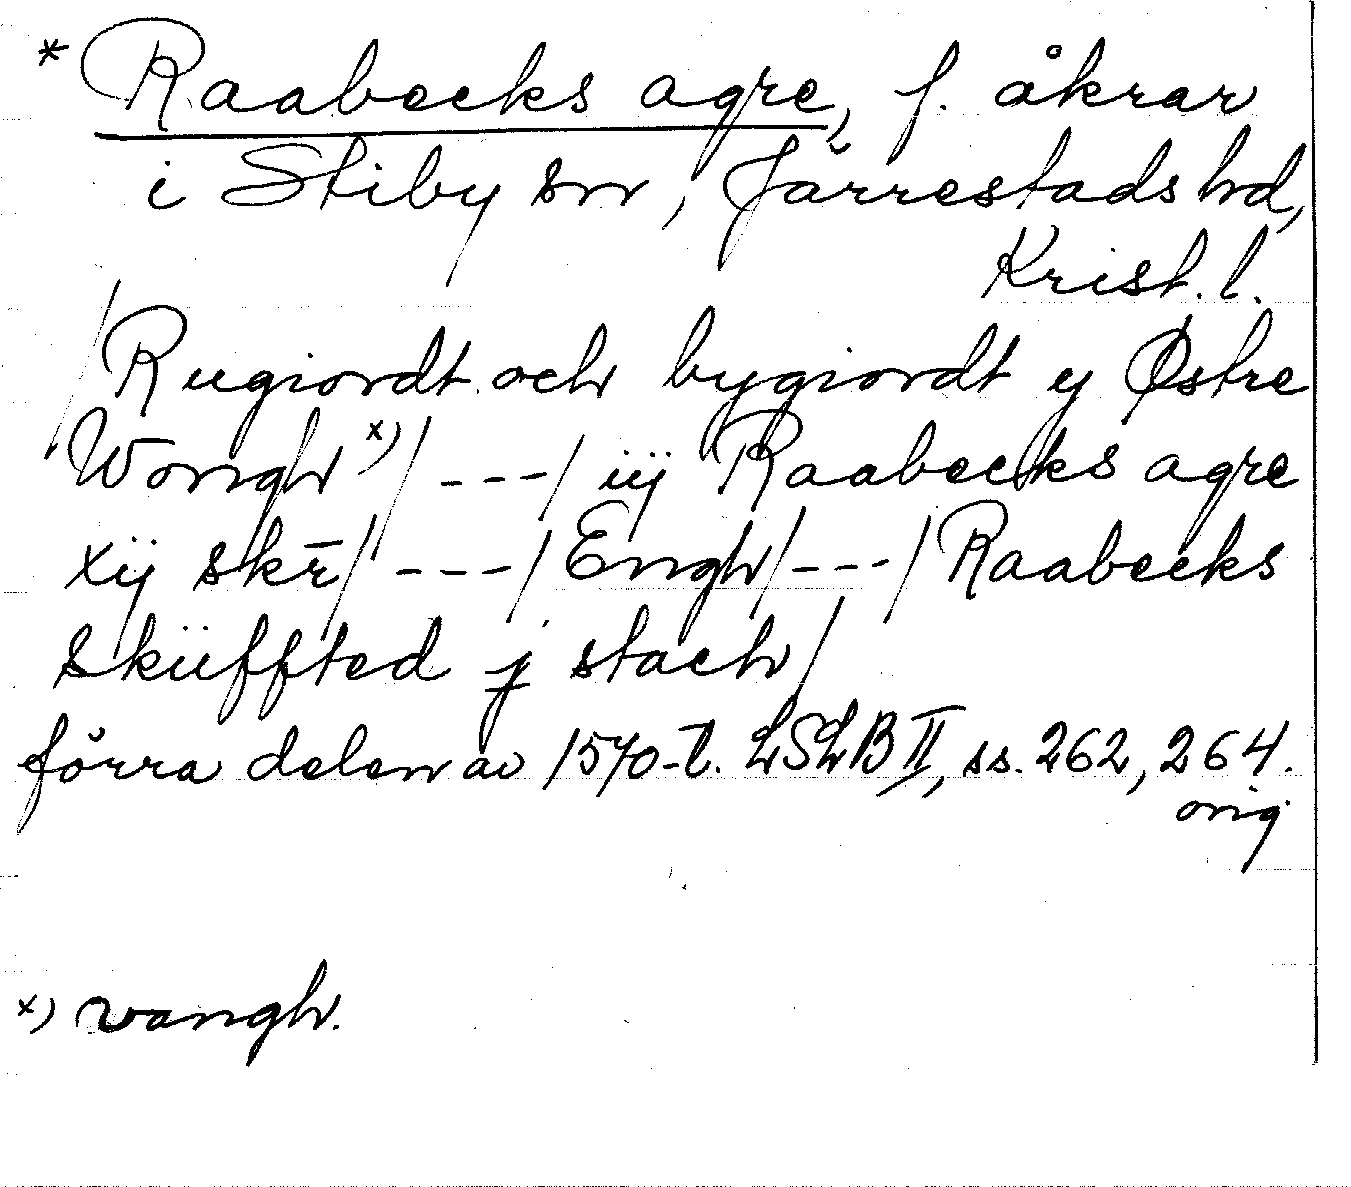 * Raabecks agre, f. åkrar
i Stiby sn, Järrestads hd,
Krist. l.
/Rugiordt och bygiordt y Østre
Wongh x)/ ---/ iij Raabecks agre
xij skr̄/ ---/ Engh/ ---/ Raabecks
sküffted j stach/
förra delen av 1570-t. LSLB II, ss. 262, 264.
orig.
x) vangh.